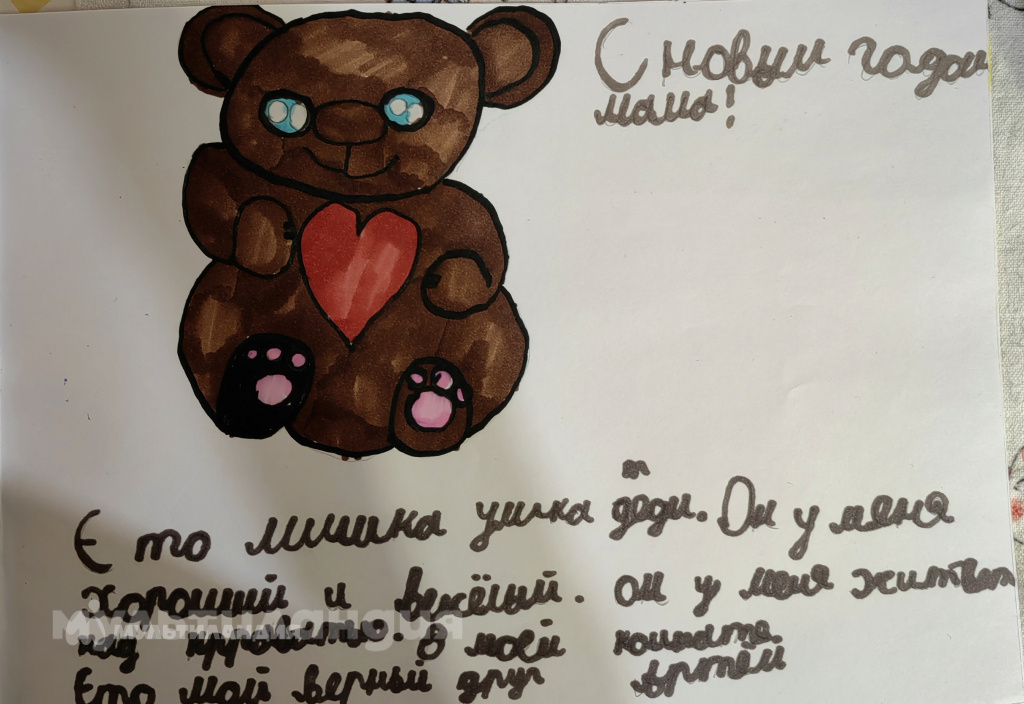 С новым годом
мама!
Є то мишка ушка теди. Он у меня
хороший и весёлый. Он у меня житвет
над кроватю. в моей комнате.
Ето мой верный друг Артём
МУЛЬТИЛАНДИЯ